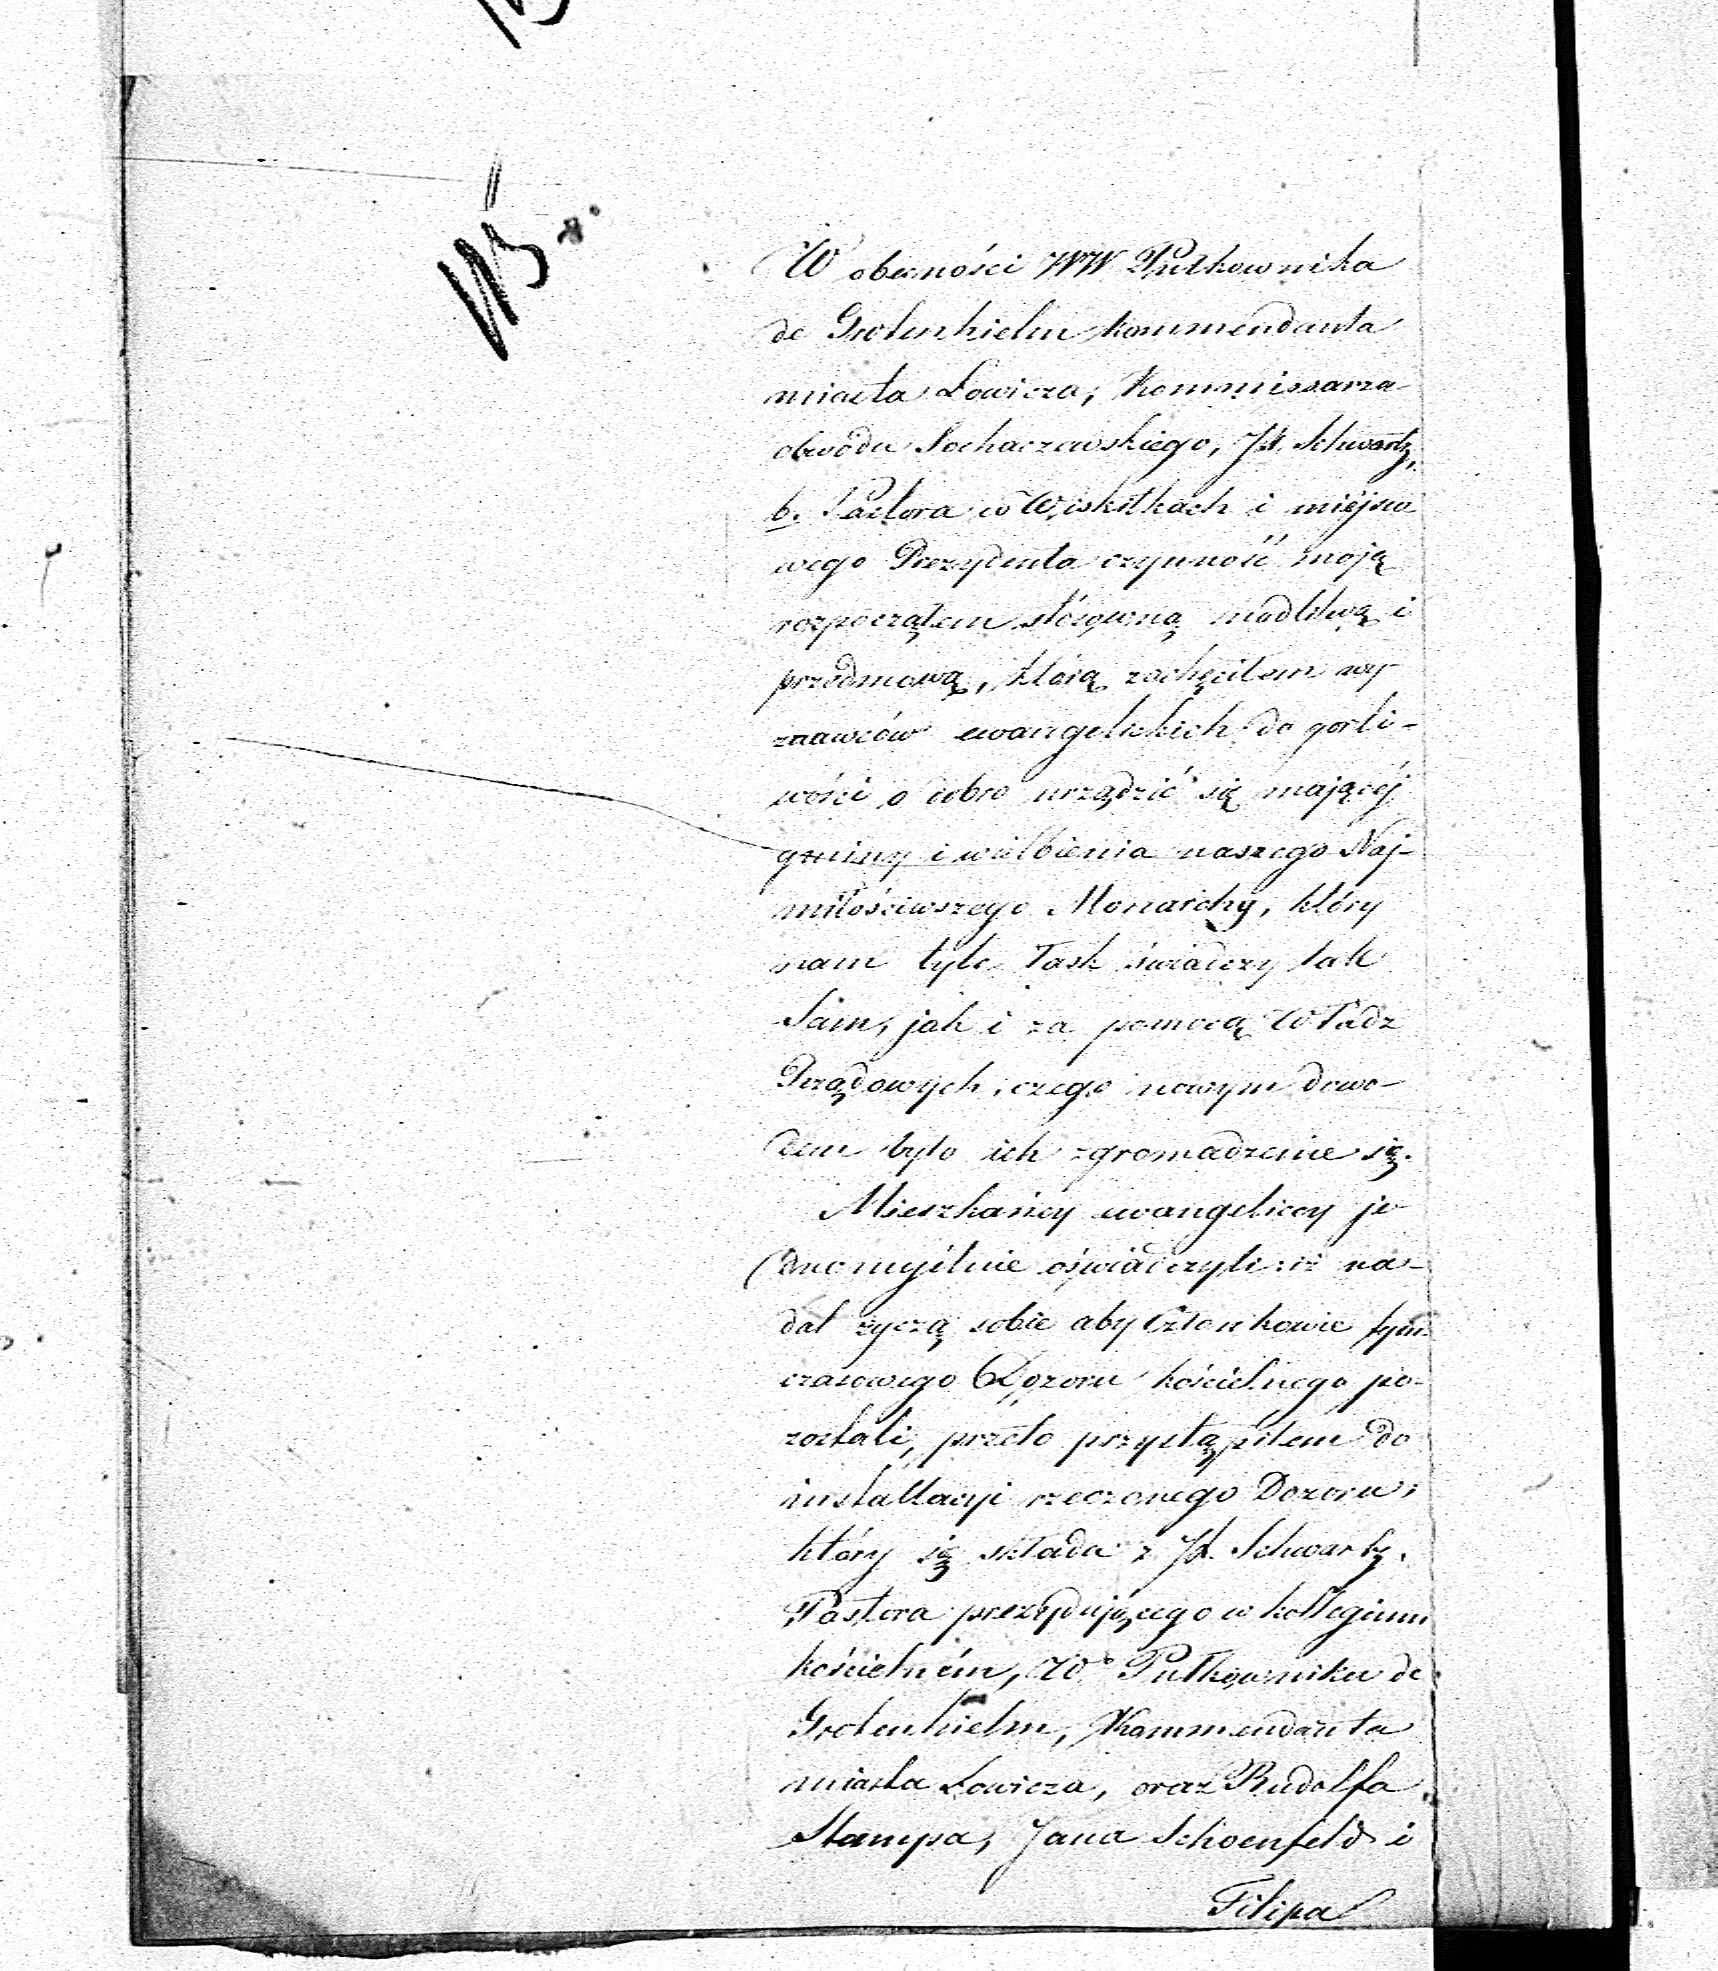 W obecności WW Pułkownika
de Grotenhielm Kommendanta
miasta Łowicza, Kommissarza
obwodu Sochaczewskiego, JX. Schwartz,
b. Pastora w Wiskitkach i miejsco
wego Prezydenta czynność moją
rozpocząłem stósowną modlitwą i
przedmową, którą zachęciłem wy
znawców ewangelickich do gorli-
wości o dobro urządzić się mającéj
gminy i wielbienia naszego Naj-
miłościwszego Monarchy, który
nam tyle łask świadczy tak
Sam, jak i za pomocą Władz
Rządowych, czego nowym dowo-
dem było ich zgromadzenie się.
Mieszkańcy ewangeliccy je
dnomyślnie oświadczyli: iż na-
dal życzą sobie aby Członkowie tym-
czasowego Dozoru kościelnego po-
zostali, przeto przystąpiłem do
installacyi rzeczonego Dozoru,
który się składa z JX. Schwartz,
Pastora prezydującego w kollegium
kościelném, W. Pułkownika de
Grotenhielm, Kommendanta
miasta Łowicza, oraz Rudolfa
Stampa, Jana Schoenfeld i
Filipa